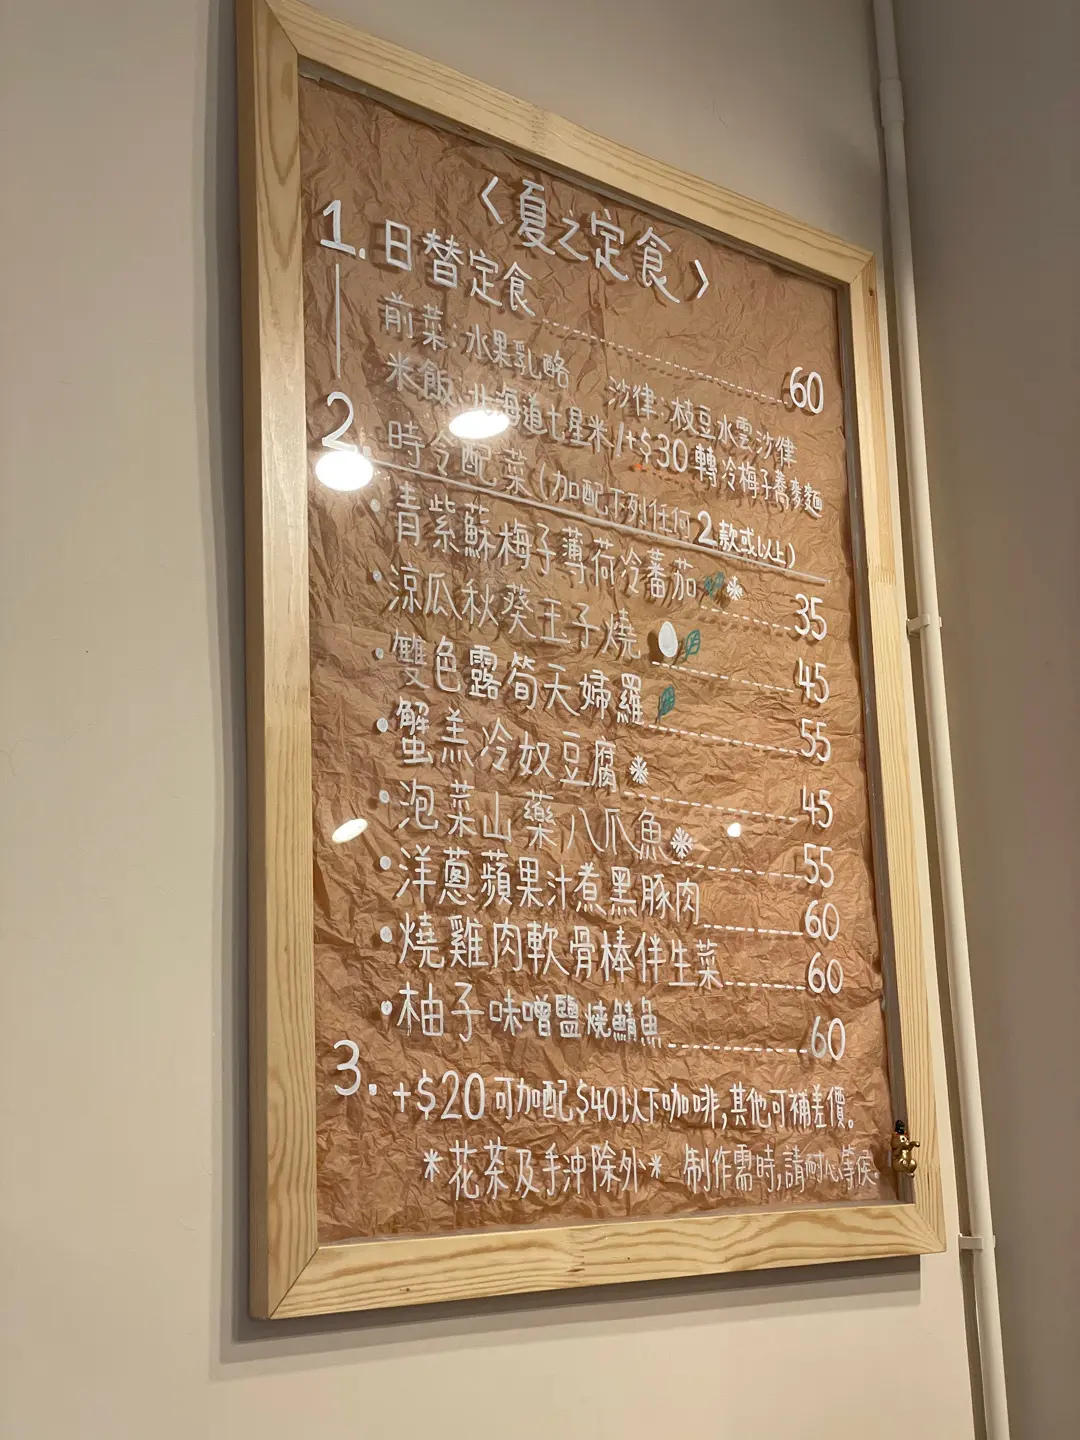 〈夏之定食〉
1. 日替定食 60
前菜:水果乳酪 沙律:枝豆水雲沙律
米飯:北海道七星米/+$30轉冷梅子蕎麥麵
2. 時令配菜(加配下列任何2款或以上)
• 青紫蘇梅子薄荷冷蕃茄 35
• 涼瓜秋葵玉子燒 45
• 雙色露筍天婦羅 55
• 蟹羔冷奴豆腐 45
• 泡菜山藥八爪魚 55
• 洋蔥蘋果汁煮黑豚肉 60
• 燒雞肉軟骨棒伴生菜 60
• 柚子味噌鹽燒鯖魚 60
3. +$20可加配$40以下咖啡,其他可補差價。
*花茶及手沖除外* 制作需時,請耐心等候。